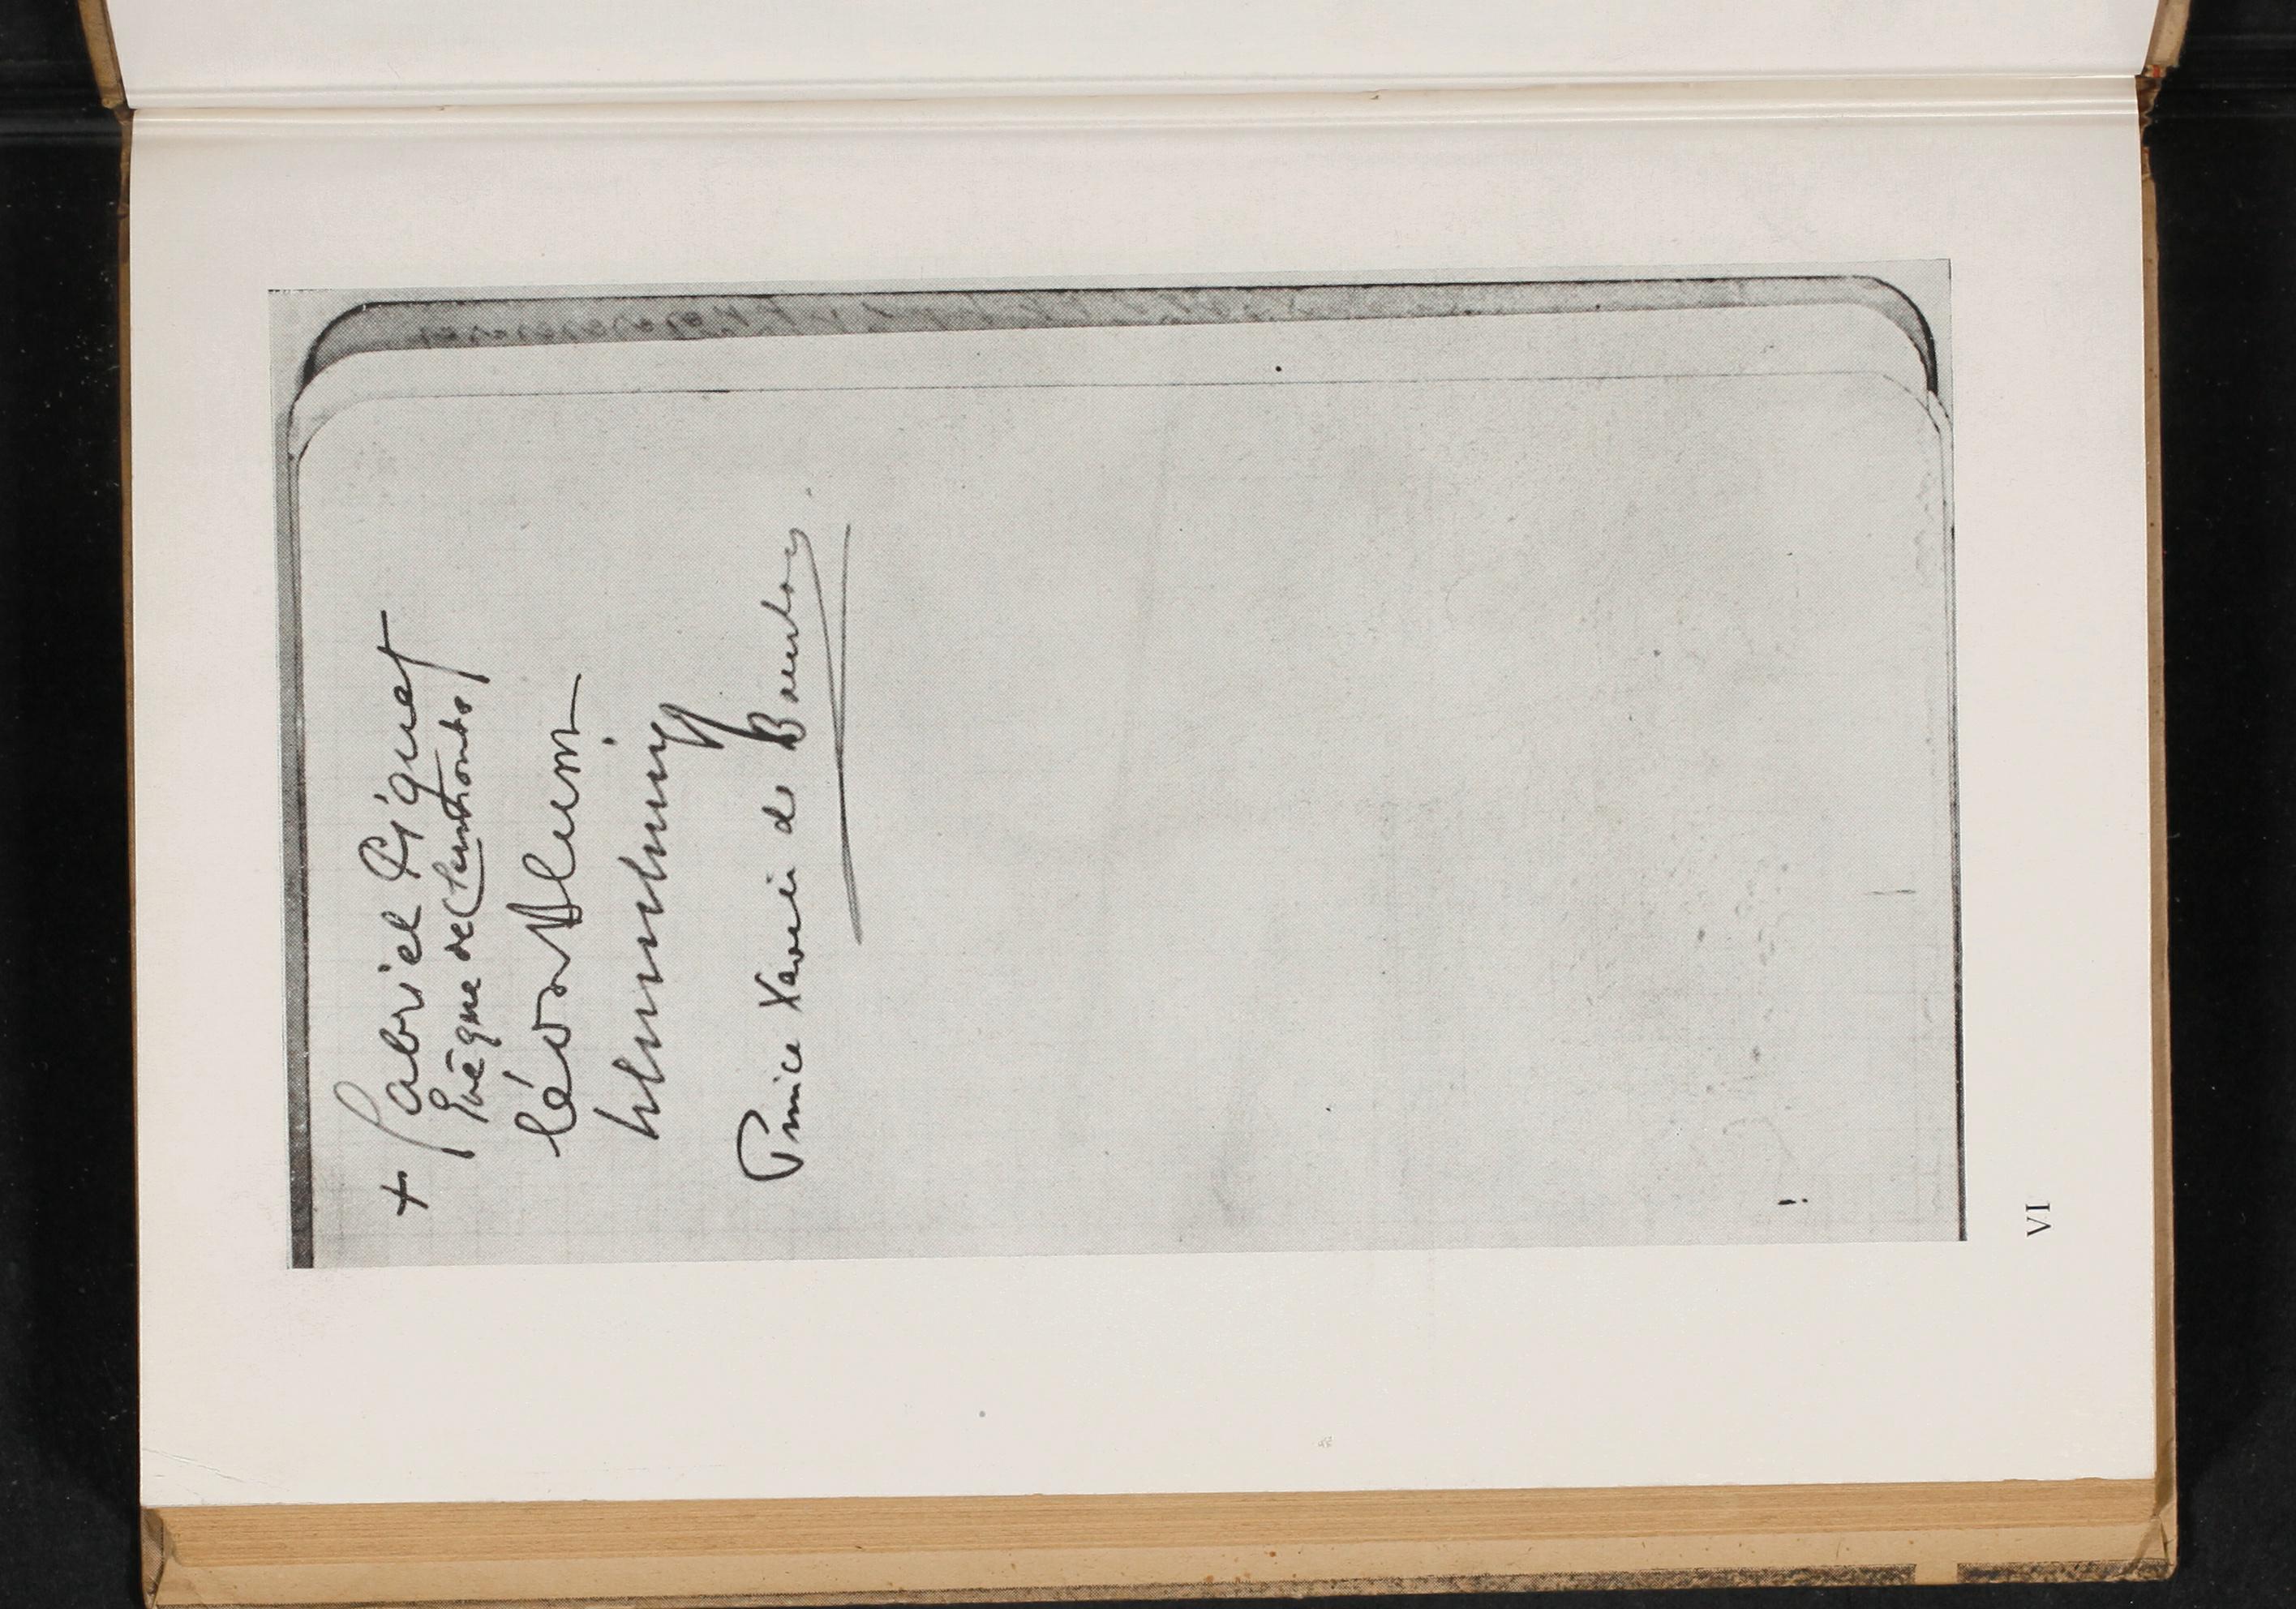 + Gabriel Piguet
Évêque de Clermont
léon Blum
Prince Xavier de Bourbon
VI